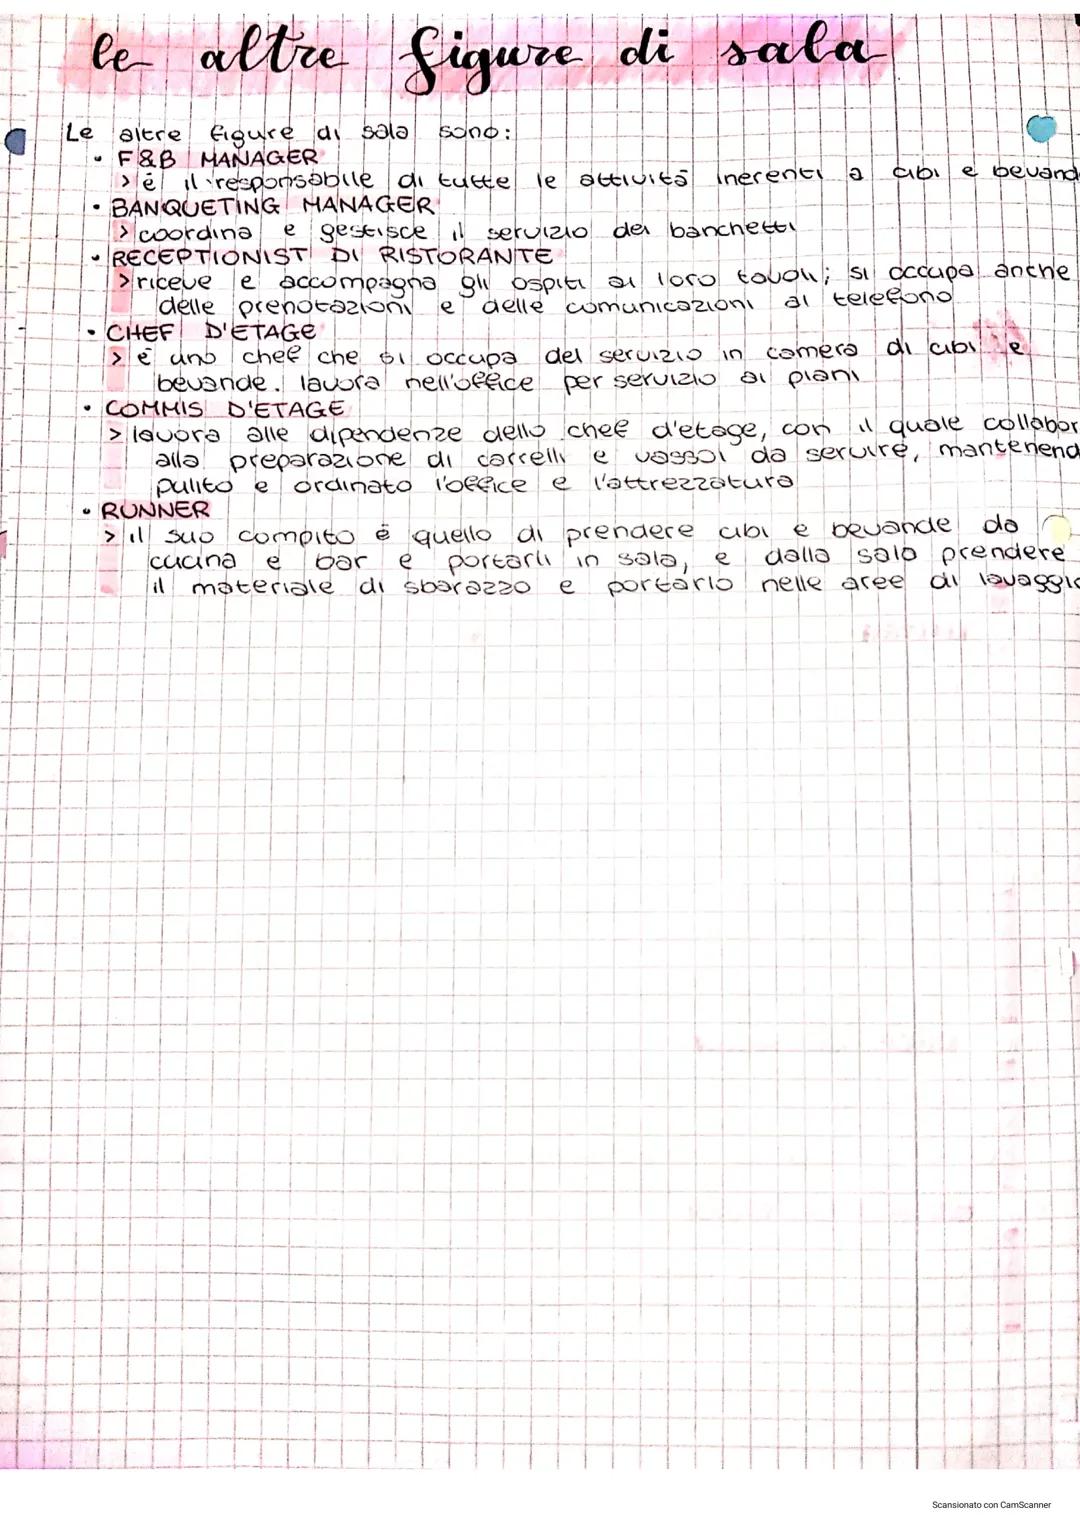 le altre figure di sala
Le altre figure di sala sono:
• F&B MANAGER
> è il responsabile di tutte le attività inerenti a cibi e bevand
• BANQUETING MANAGER
> coordina e gestisce il servizio dei banchetti
• RECEPTIONIST DI RISTORANTE
> riceve e accompagna gli ospiti ai loro tavoli; si occupa anche
delle prenotazioni e delle comunicazioni al telefono
• CHEF D'ETAGE
> è uno chef che si occupa del servizio in camera di cibi e
bevande. lavora nell'office per servizio ai piani
• COMMIS D'ETAGE
> lavora alle dipendenze dello chef d'etage, con il quale collabor
alla preparazione di carrelli e vassoi da servire, mantenend
pulito e ordinato l'office e l'attrezzatura
• RUNNER
> il suo compito è quello di prendere cibi e bevande da
cucina e bar e portarli in sala, e dalla sala prendere
il materiale di sbarazzo e portarlo nelle aree di lavaggio
Scansionato con CamScanner